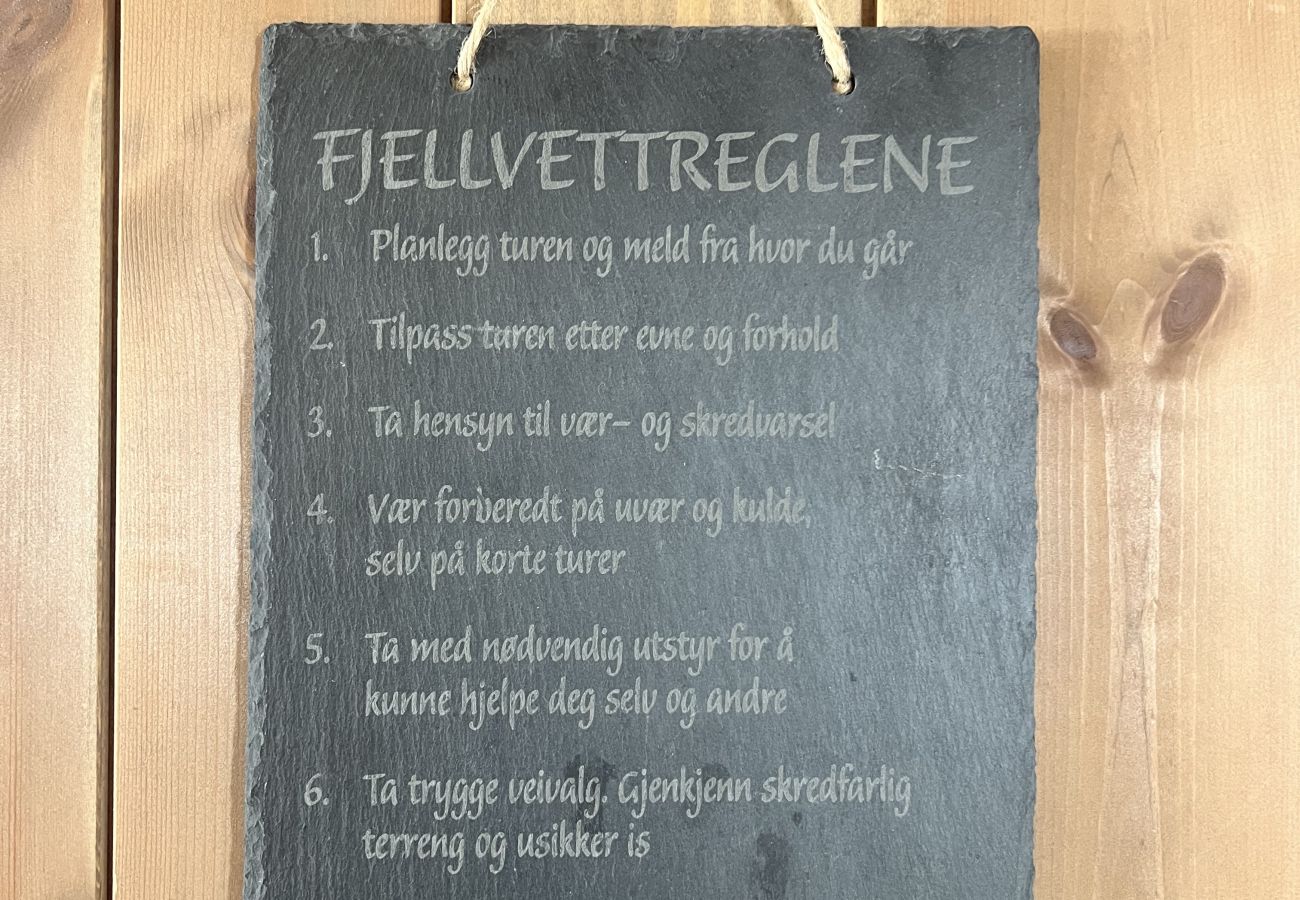 FJELLVETTREGLENE
1. Planlegg turen og meld fra hvor du går
2. Tilpass turen etter evne og forhold
3. Ta hensyn til vær- og skredvarsel
4. Vær forberedt på uvær og kulde,
selv på korte turer
5. Ta med nødvendig utstyr for å
kunne hjelpe deg selv og andre
6. Ta trygge veivalg. Gjenkjenn skredfarlig
terreng og usikker is